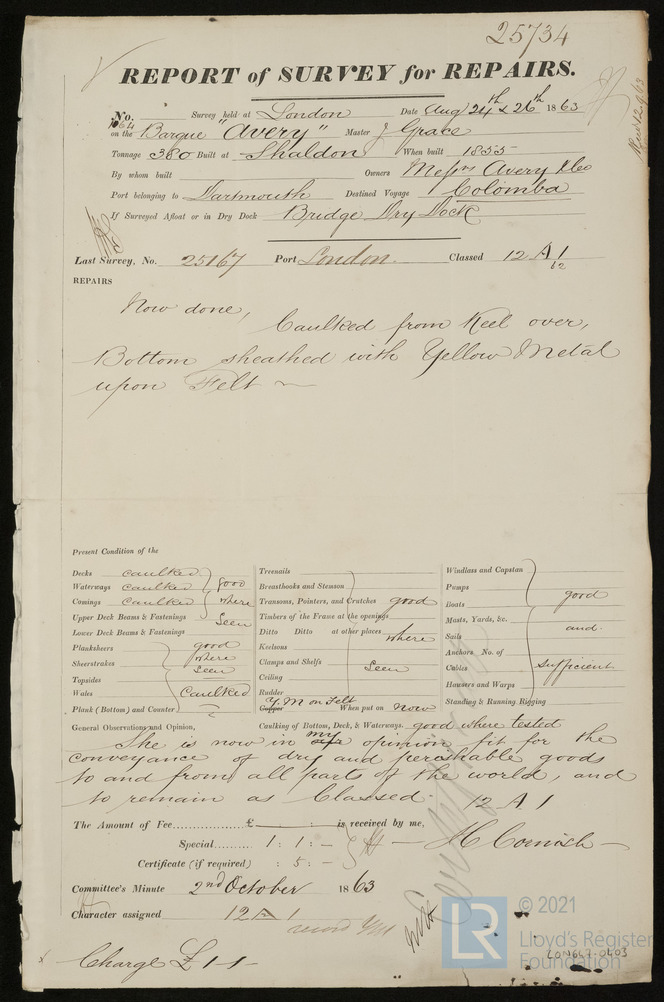 25734
REPORT of SURVEY for REPAIRS.
No. 1064 Survey held at London Date Aug 24th & 26th 1863
on the Barque "Avery" Master J Grace
Tonnage 380 Built at Shaldon When built 1855
By whom built Owners Messrs Avery & Co
Port belonging to Dartmouth Destined Voyage Colomba
If Surveyed Afloat or in Dry Dock Bridge Dry Dock
Last Survey, No. 25167 Port London. Classed 12 A 1
62
REPAIRS
Now done,
Caulked from Keel over,
Bottom sheathed with Yellow Metal
upon Felt
Present Condition of the
Decks caulked
Waterways caulked good
Comings caulked where
Upper Deck Beams & Fastenings seen
Lower Deck Beams & Fastenings
Planksheers good
Sheerstrakes where
seen
Topsides
Wales Caulked
Plank (Bottom) and Counter
Treenails
Breasthooks and Stemson
Transoms, Pointers, and Crutches good
Timbers of the Frame at the openings
Ditto Ditto at other places where
Keelsons
Clamps and Shelfs seen
Ceiling
Rudder
Y.M on Felt
Copper When put on Now
Windlass and Capstan
Pumps
good
Boats
Masts, Yards, &c. and
Sails
Anchors No. of
Cables sufficient
Hawsers and Warps
Standing & Running Rigging
General Observations and Opinion, Caulking of Bottom, Deck, & Waterways. good where tested
She is now in my opinion fit for the
conveyance of dry and perashable goods
to and from all parts of the world, and
to remain as Classed. 12 A 1
The Amount of Fee £ : : is received by me,
Special 1 : 1 : – H C Cornish
Certificate (if required) : 5 : –
Committee's Minute 2nd October 1863
Character assigned 12 A 1
record YM
Charge £ 1 - 1 -
© 2021
LR Lloyd's Register
Foundation
LON667-0403